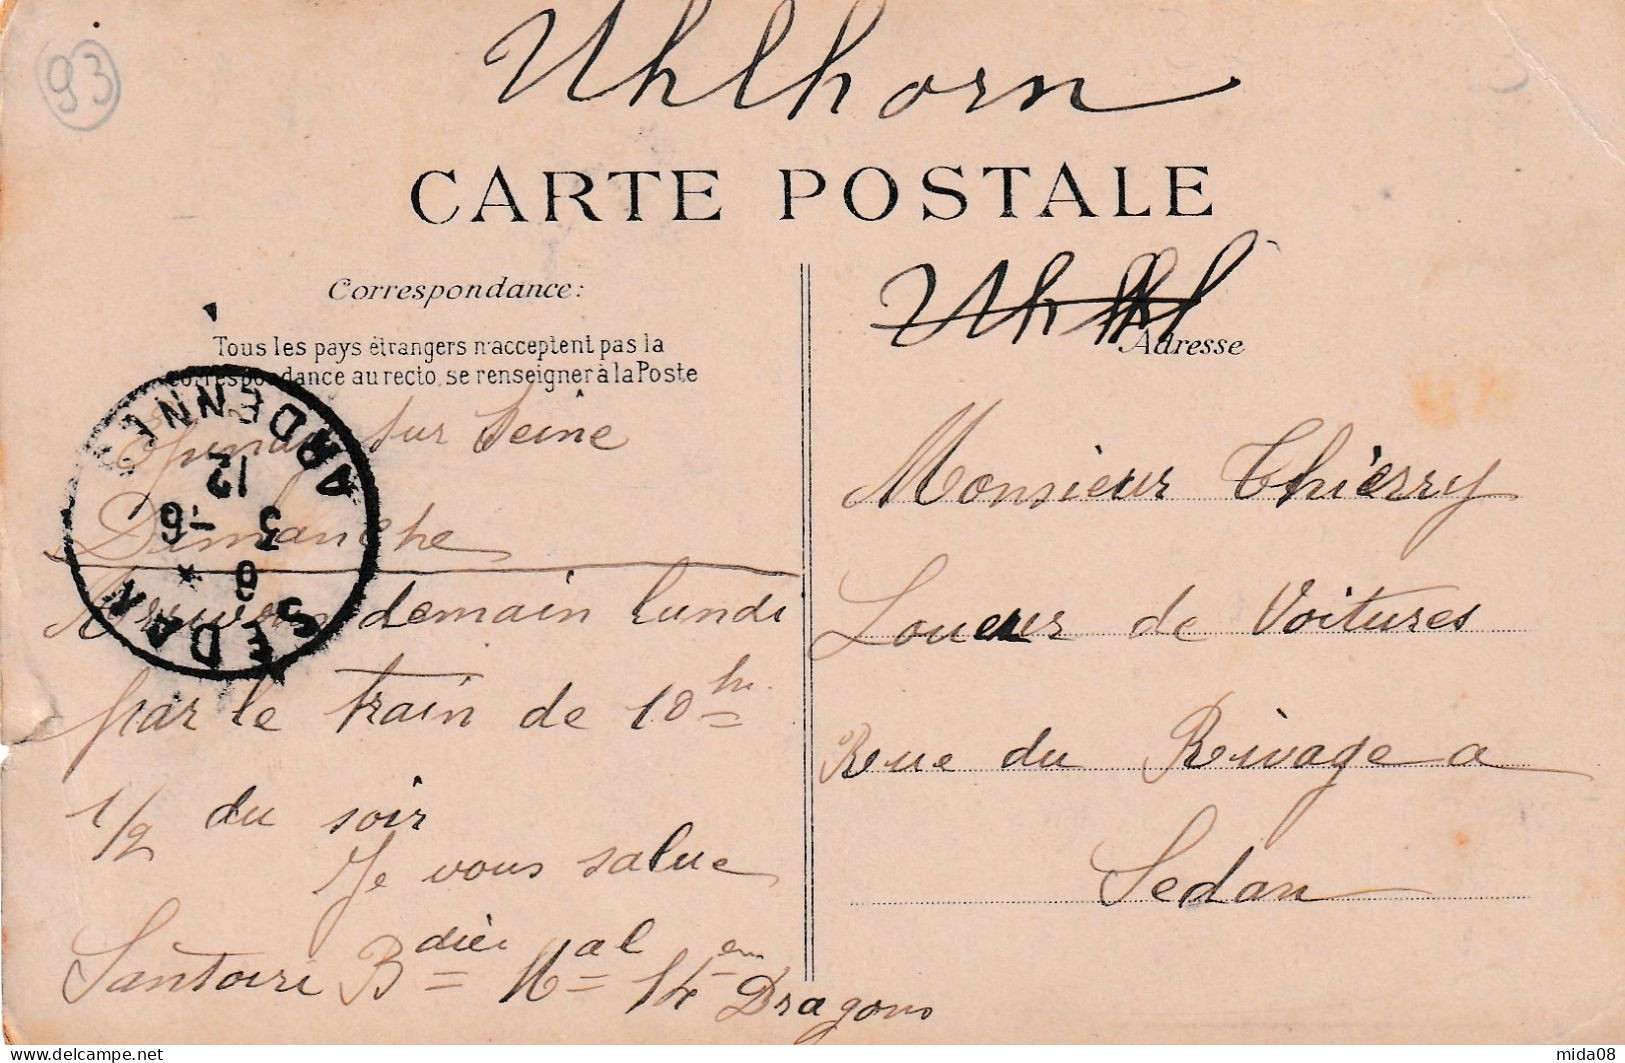 93
Uhlhorn
CARTE POSTALE
Correspondance:
Tous les pays étrangers n'acceptent pas la
correspondance au recto, se renseigner à la Poste
Epinay sur Seine
Dimanche
Arriverons demain lundi
par le train de 10 h
1/2 du soir
Je vous salue
Santoire Bdier Mal 14em Dragons
Uhlhl
Adresse
Monsieur Thierry
Loueur de Voitures
Rue du Rivage a
Sedan
SEDAN
8 *
3 -6
12
ARDENNES
mida08